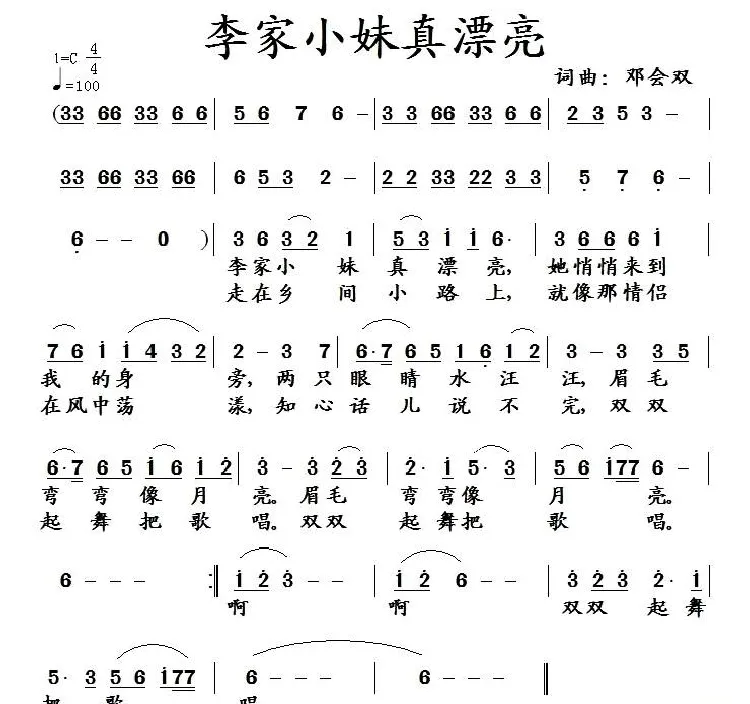 李家小妹真漂亮
1=C 4/4
♩=100
词曲：邓会双
(33 66 33 6 6 | 5 6 7 6 - | 3 3 66 33 6 6 | 2 3 5 3 - |
33 66 33 66 | 6 5 3 2 - | 2 2 33 22 3 3 | 5 7 6 - |
6 - - 0 ) | 3 6 3 2 1 | 5 3 i i 6· | 3 6 6 6 i
李家小 妹 真 漂 亮, 她悄悄来到
走在乡 间 小 路 上, 就像那情侣
7 6 i i 4 3 2 | 2 - 3 7 | 6·7 6 5 1 6 1 2 | 3 - 3 3 5
我 的身 旁, 两 只 眼 睛 水 汪 汪, 眉毛
在风中荡 漾, 知 心 话 儿 说 不 完, 双双
6·7 6 5 i 6 i 2 | 3 - 3 2 3 | 2· i 5· 3 | 5 6 i77 6 - |
弯 弯 像 月 亮。眉毛 弯 弯像 月 亮。
起 舞 把 歌 唱。双双 起 舞把 歌 唱。
6 - - - :‖ i 2 3 - - | i 2 6 - - | 3 2 3 2· i |
啊 啊 双双 起 舞
5· 3 5 6 i77 | 6 - - - | 6 - - - ‖
把 歌 唱